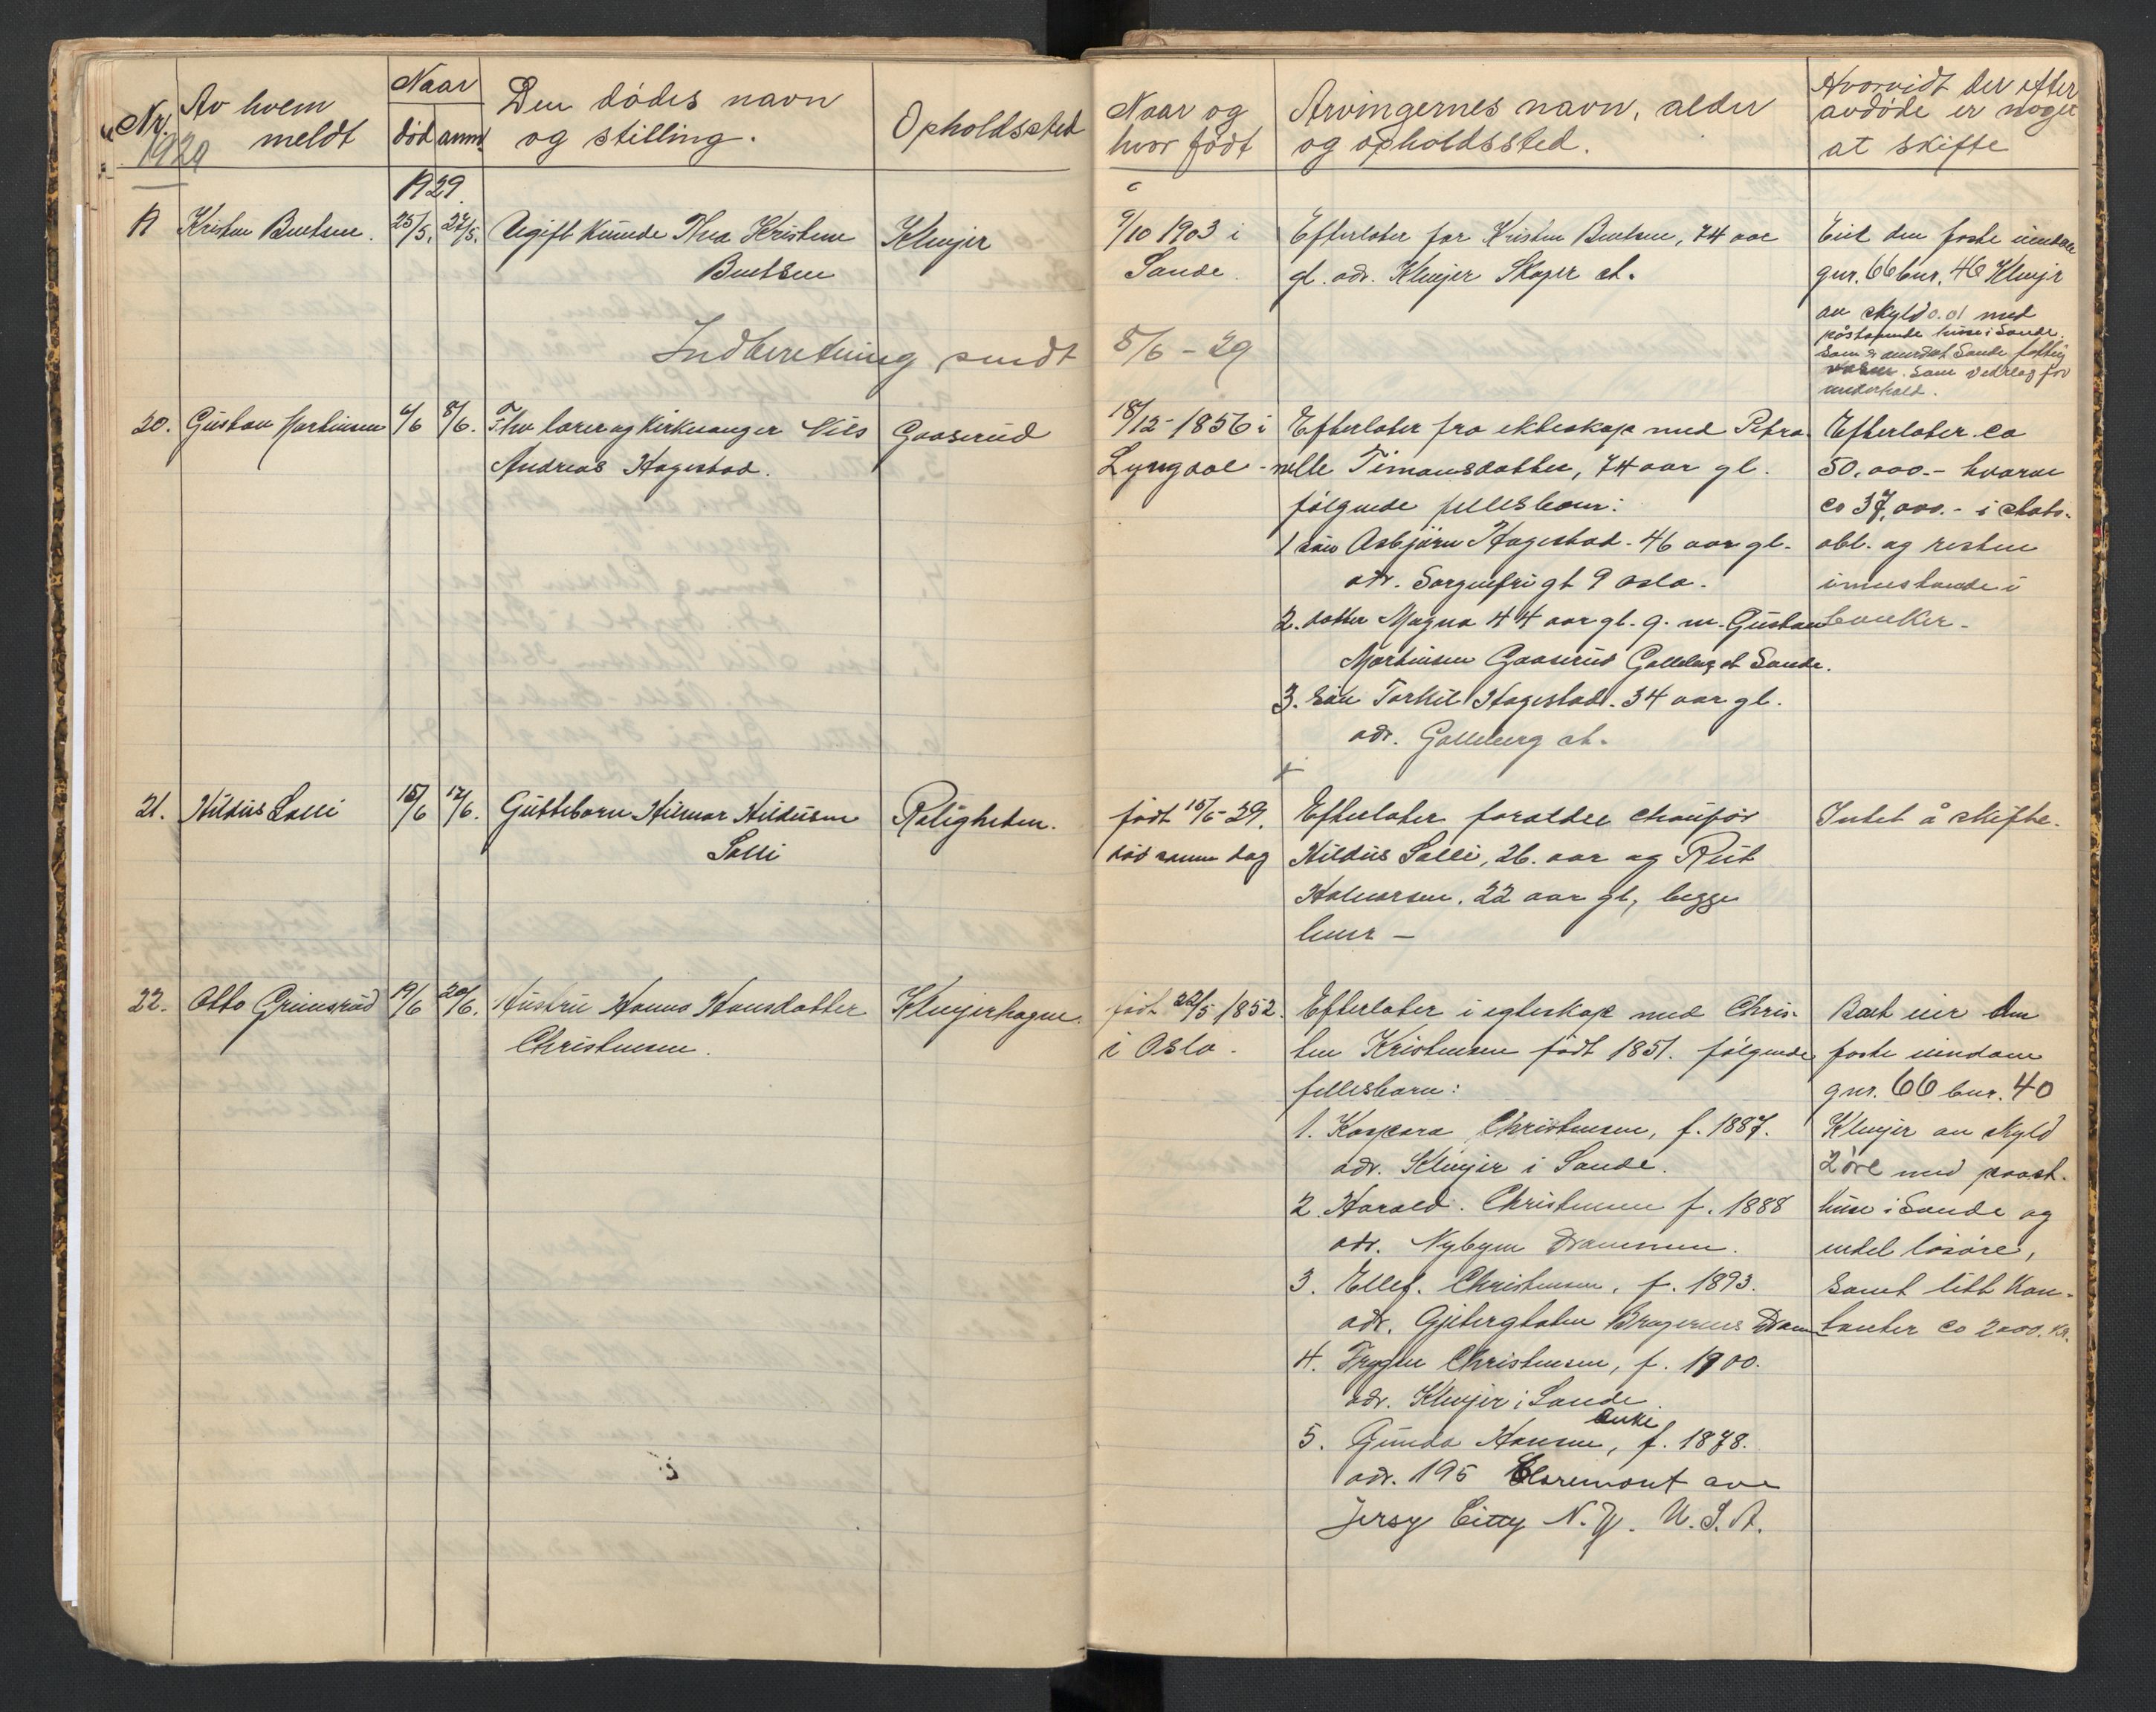 Nr. Av hvem meldt
1929
Naar
død anm.
Den dødes navn
og stilling.
Opholdssted
Naar og
hvor født
Arvingernes navn, alder
og opholdssted.
Hvorvidt der efter
avdøde er noget
at skifte
1929.
19 Kristen Bentsen. 25/5. 27/5. Ugift kvinde Thea Kristine
Bentsen
Klevjer
9/10 1903 i
Sande.
Efterlater far Kristen Bentsen, 74 aar
gl. adr. Klevjer Skoger st.
Eiet den faste eiendom
gnr. 66 bnr. 46 Klevjer
av skyld 0.01 med
påstaaende huse i Sande.
Som er Sande
som vederlag for
underhold.
Indberetning sendt 5/6 - 29
20. Gustav Martinsen 4/6 8/6. Fhv. lærer og Kirkesanger Nils
Andreas Hagestad.
Gaaserud
18/12 - 1856 i
Lyngdal -
Efterlater fra ekteskap med Petro-
nelle Timansdatter, 74 aar gl.
følgende fellesbarn:
1 søn Asbjørn Hagestad - 46 aar gl.
adr. Sorgenfrigt 9 Oslo.
2. datter Magna 44 aar gl. g. m. Gustav
Martinsen Gaaserud Galleberg st Sande.
3. Søn Torkil Hagestad. 34 aar gl.
adr. Galleberg st.
Efterlater ca
50.000.- hvorav
ca 37,000.- i stats-
obl. og resten
innestaaende i
banker -
21. Hildus Solli 15/6 17/6. Guttebarn Hilmar Hildusen
Solli
Roligheten.
født 15/6-29.
død samme dag
Efterlater foreldre chauför
Hildus Solli, 26. aar og Rut
Halvorsen. 22 aar gl, begge
her -
Intet å skifte.
22. Otto Grimsrud 19/6 20/6. Hustru Hanna Hansdatter
Christensen.
Klevjerhagen.
født 22/5 1852.
i Oslo.
Efterlater i egteskap med Chris-
ten Kristensen født 1851. følgende
fellesbarn:
1. Kaspara Christensen, f. 1887.
adr. Klevjer i Sande.
2. Harald. Christensen f. 1888
adr. Nybyen Drammen.
3. Ellef. Christensen, f. 1893.
adr. Bragernes Dram
4. Trygve Christensen, f. 1900.
adr. Klevjer i Sande.
enke
5. Gunda Hansen, f. 1878.
adr. 195 Claremont ave
Jersy Citty N. Y. U. S. A.
Boet eier den
faste eiendom
gnr. 66 bnr. 40
Klevjer av skyld
2 øre med paast.
huse i Sande og
endel løsøre,
samt litt kon-
tanter ca 2000. kr.